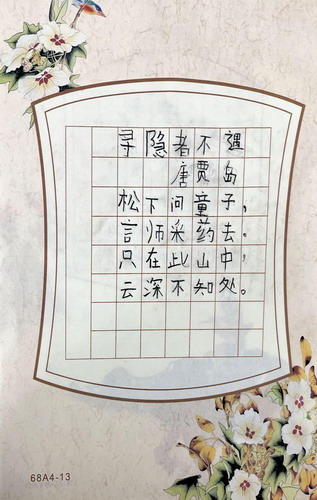 寻隐者不遇
唐贾岛
松下问童子，
言师采药去。
只在此山中，
云深不知处。
68A4-13